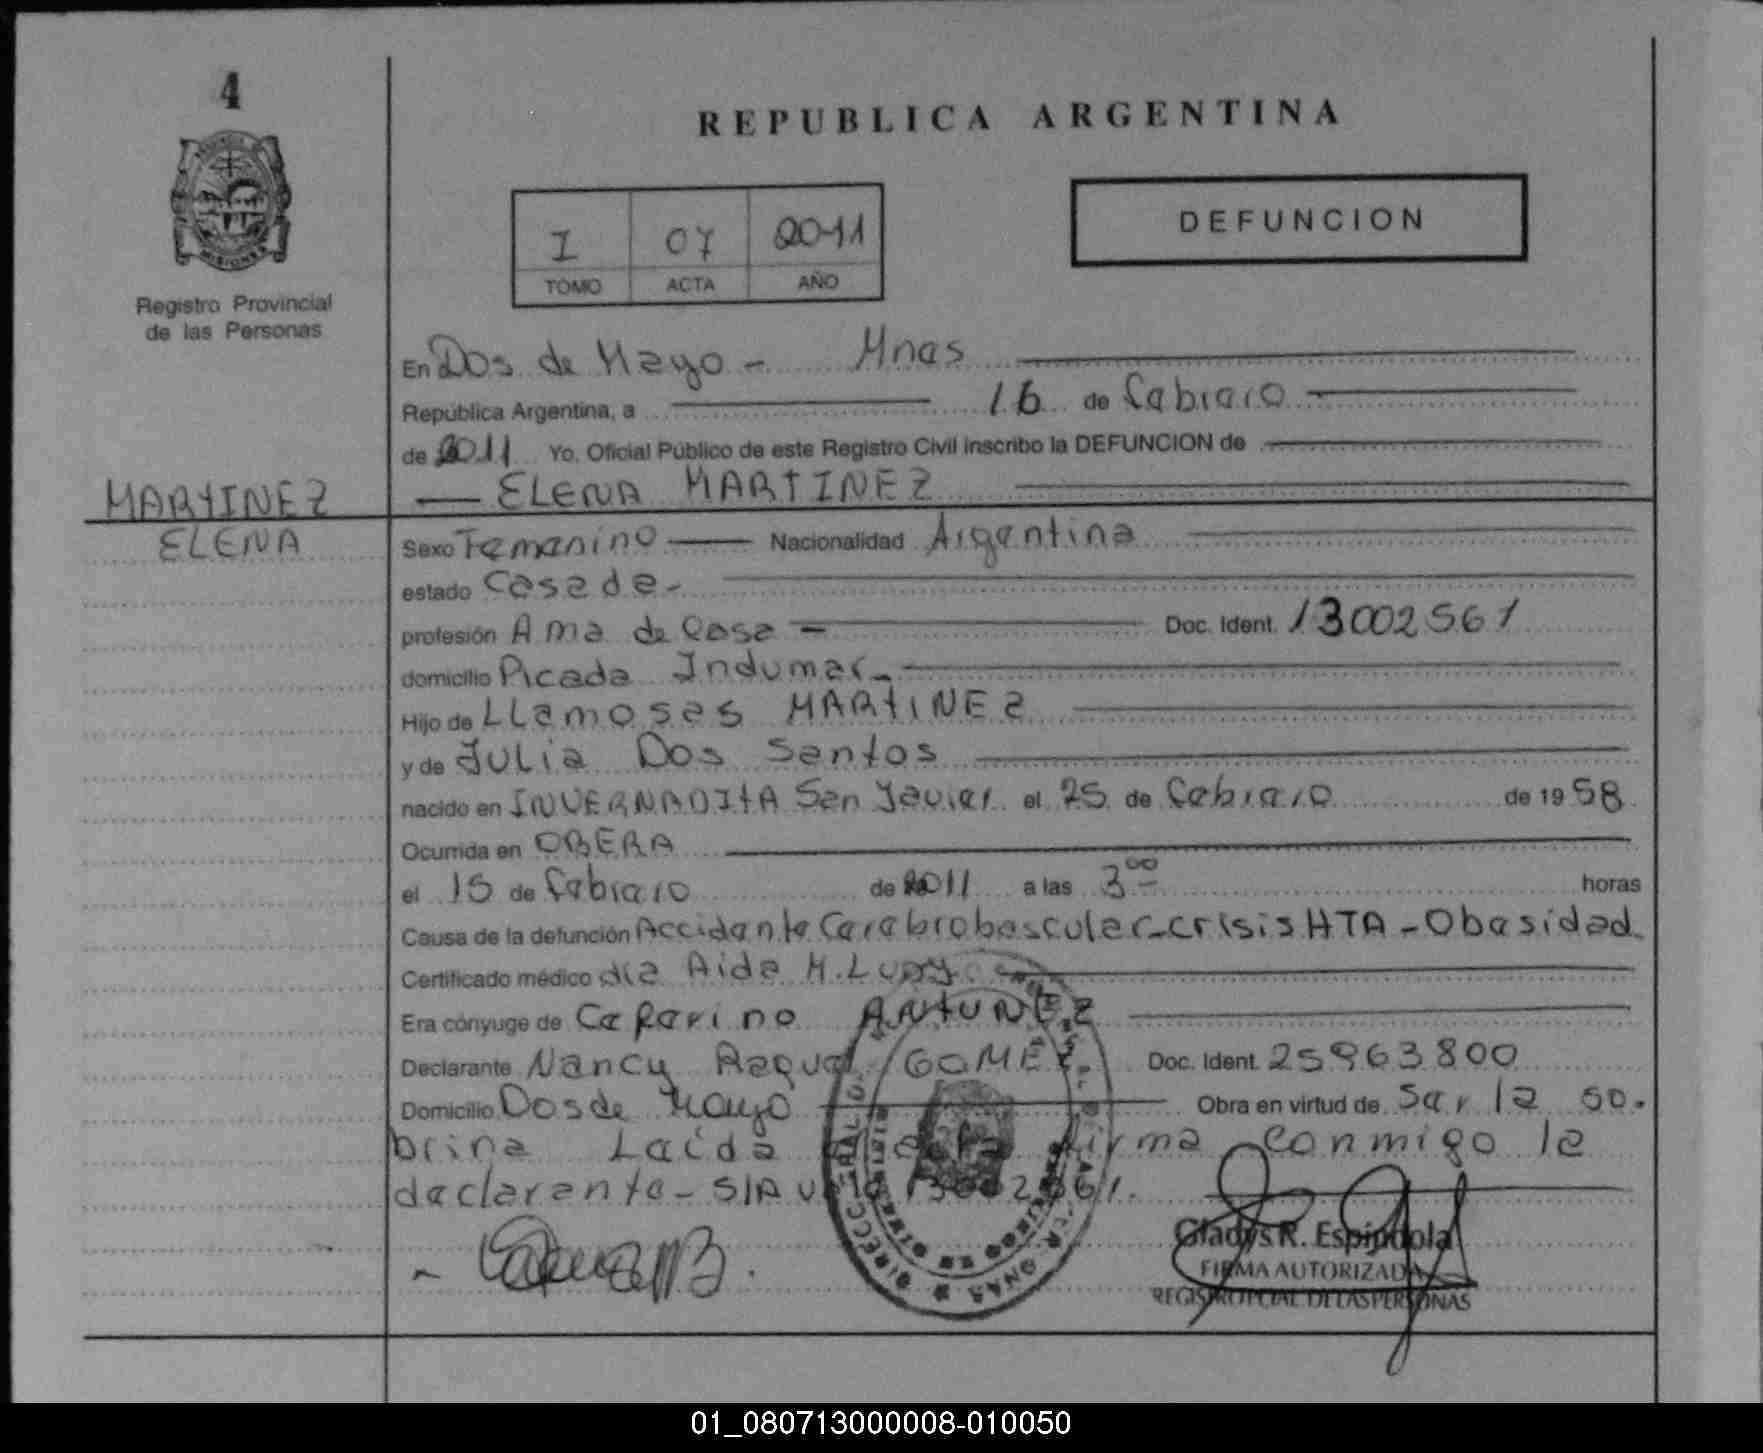 4
REPUBLICA ARGENTINA
I 07 2011
TOMO ACTA AÑO
DEFUNCION
MISIONES
Registro Provincial
de las Personas
En Dos de Mayo - Mnas
República Argentina, a 16 de febrero
de 2011 Yo, Oficial Público de este Registro Civil inscribo la DEFUNCION de
MARTINEZ
ELENA
ELENA MARTINEZ
Sexo Femenino Nacionalidad Argentina
estado Casada-
profesión Ama de Casa - Doc. Ident. 13002561
domicilio Picada Indumar-
Hijo de LLamosas MARTINEZ
y de Julia Dos Santos
nacido en INVERNADITA San Javier el 25 de febrero de 1958
Ocurrida en OBERA
el 15 de febrero de 2011 a las 3 00 horas
Causa de la defunción Accidente Cerebrobascular-crisis HTA - Obesidad.
Certificado médico dra Aida M.
Era cónyuge de Ceferino ANTUNEZ
Declarante Nancy Raquel GOMEZ Doc. Ident. 25963800
Domicilio Dos de Mayo Obra en virtud de Ser la so.
brina Leída el acta firma conmigo la
declarante- S/A 13002561.
Gladys R. Espindola
FIRMA AUTORIZADA
REGISTRO PCIAL DE LAS PERSONAS
01_080713000008-010050